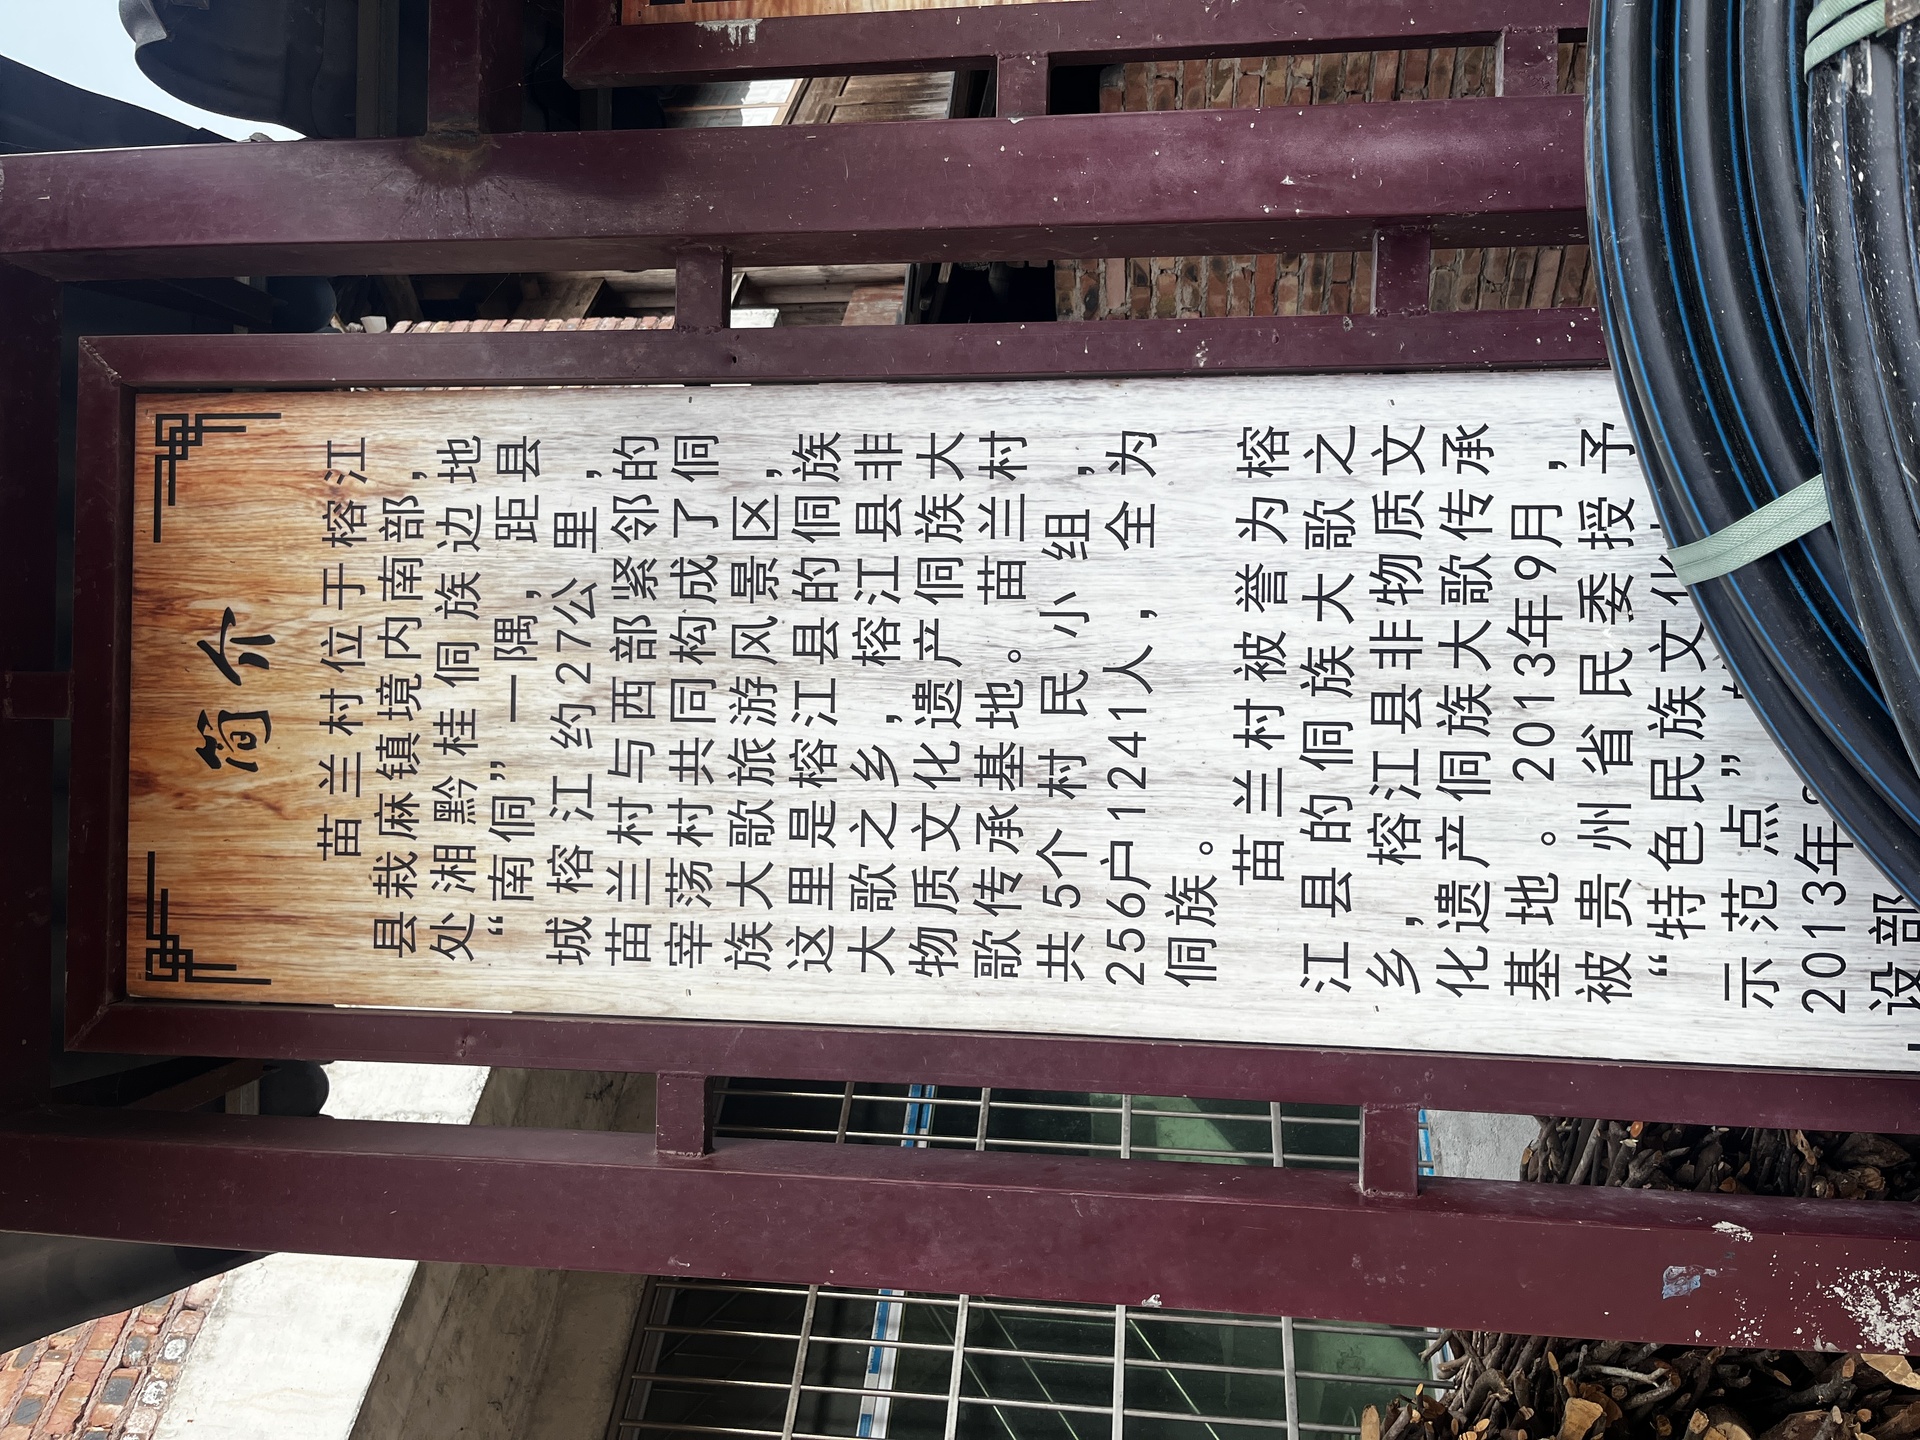 简介
苗兰村位于榕江
县栽麻镇境内南部,
处湘黔桂侗族边地
“南侗”一隅,距县
城榕江约27公里,
苗兰村与西部紧邻的
宰荡村共同构成了侗
族大歌旅游风景区,
这里是榕江县的侗族
大歌之乡,榕江县非
物质文化遗产侗族大
歌传承基地。苗兰村
共5个村民小组,
256户1241人,全为
侗族。
苗兰村被誉为榕
江县的侗族大歌之
乡,榕江县非物质文
化遗产侗族大歌传承
基地。2013年9月,
被贵州省民委授予
“特色民族文化
示范点”
2013年。
设部